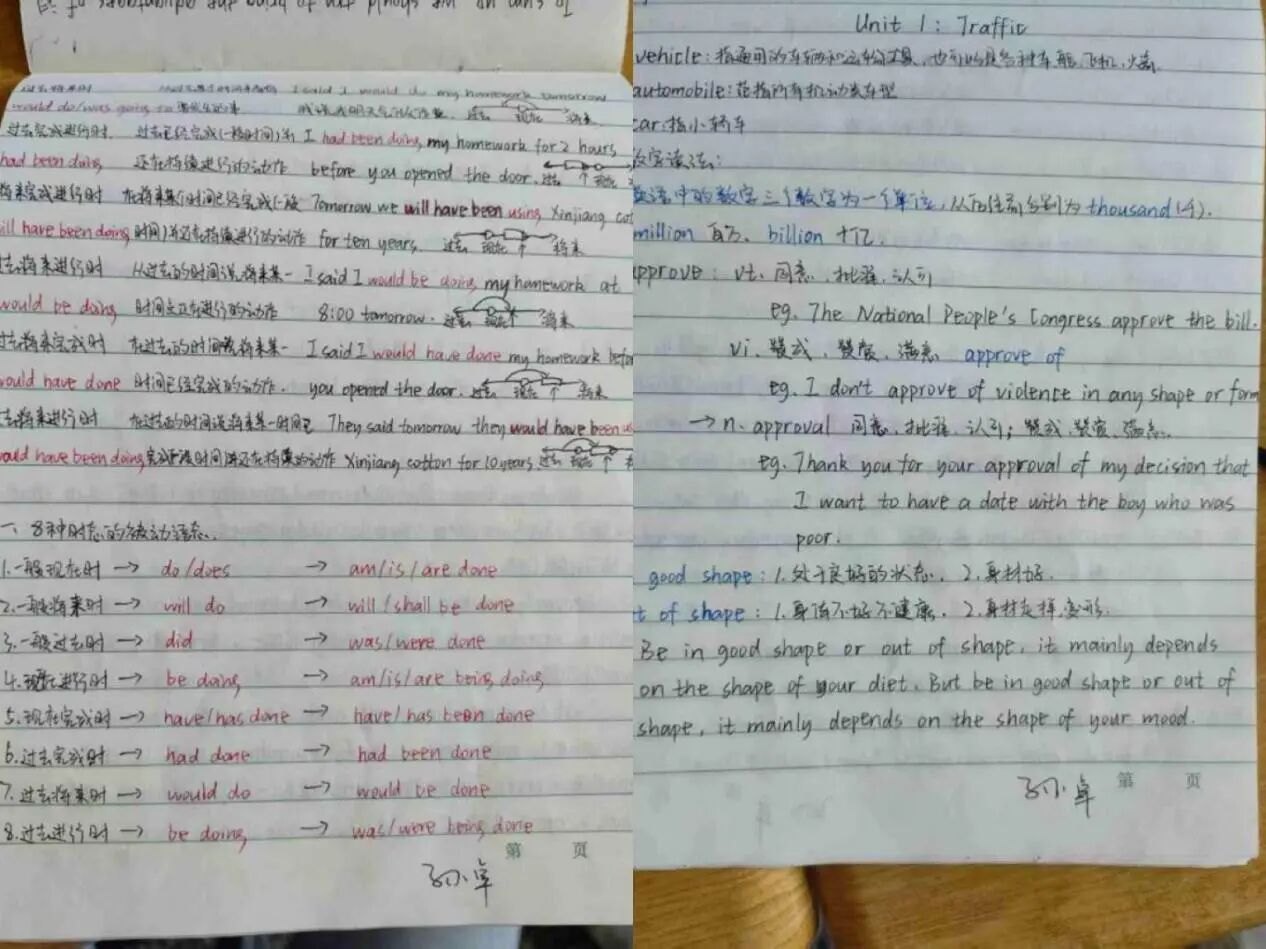 To sum up, we should try to bring the advantages of
过去将来时 I said I would do my homework tomorrow
would do/was going to 过去 现在 将来
过去完成进行时 过去已经完成(一段时间)并 I had been doing my homework for 2 hours
had been doing 还在持续进行的动作 before you opened the door. 过去 现在
将来完成进行时 在将来某个时间已经完成(一段 Tomorrow we will have been using Xinjiang cot
ill have been doing 时间)并还在持续进行的动作 for ten years. 过去 现在 将来
去将来进行时 从过去的时间说将来某一 I said I would be doing my homework at
would be doing 时间点正在进行的动作 8:00 tomorrow. 过去 现在 将来
过去将来完成时 在过去的时间说将来某一 I said I would have done my homework befo
would have done 时间已经完成的动作. you opened the door. 过去 现在 将来
去将来进行时 在过去的时间说将来某一时间已 They said tomorrow they would have been us
ould have been doing 完成一段时间并还在持续的动作 Xinjiang cotton for 10 years. 过去 现在
一、8种时态的被动语态.
1.一般现在时 → do/does → am/is/are done
2.一般将来时 → will do → will/shall be done
3.一般过去时 → did → was/were done
4.现在进行时 → be doing → am/is/are being doing
5.现在完成时 → have/has done → have/has been done
6.过去完成时 → had done → had been done
7.过去将来时 → would do → would be done
8.过去进行时 → be doing → was/were being done
第 页
Unit 1: Traffic
vehicle: 指通用的车辆和运输工具, 也可以是各种车、船、飞机、火箭
automobile: 范指所有机动发车型
car: 指小轿车
数字读法:
英语中的数字三个数字为一个单位, 从后往前分别为thousand(千).
million 百万、billion 十亿.
approve: vt. 同意、批准、认可
eg. The National People's Congress approve the bill.
vi. 赞成、赞赏、满意 approve of
eg. I don't approve of violence in any shape or form
→n. approval 同意、批准、认可; 赞成、赞赏、满意.
eg. Thank you for your approval of my decision that
I want to have a date with the boy who was
poor.
good shape: 1.处于良好的状态. 2.身材好.
t of shape: 1.身体不好不健康. 2.身材走样,变形.
Be in good shape or out of shape, it mainly depends
on the shape of your diet. But be in good shape or out of
shape, it mainly depends on the shape of your mood.
第 页